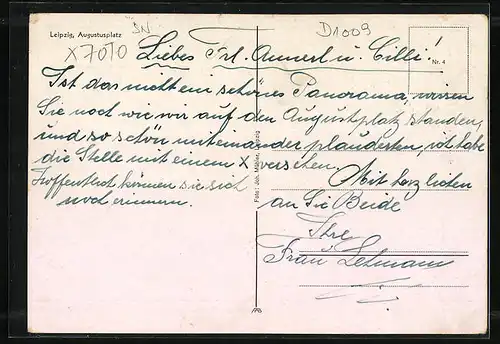 Leipzig, Augustusplatz
SN
D1009
X7010
Liebes Frl. Annerl u. Cilli!
Nr. 4
Ist das nicht ein schönes Panorama, wissen
Sie noch wie wir auf den Augustplatz standen,
und so schön miteinander plauderten, ich habe
die Stelle mit einem X versehen.
Hoffentlich können sie sich
noch erinnern.
Mit herzlichen
an Sie Beide
Ihre
Frau Lehmann
Foto: Joh. Müller, Leipzig